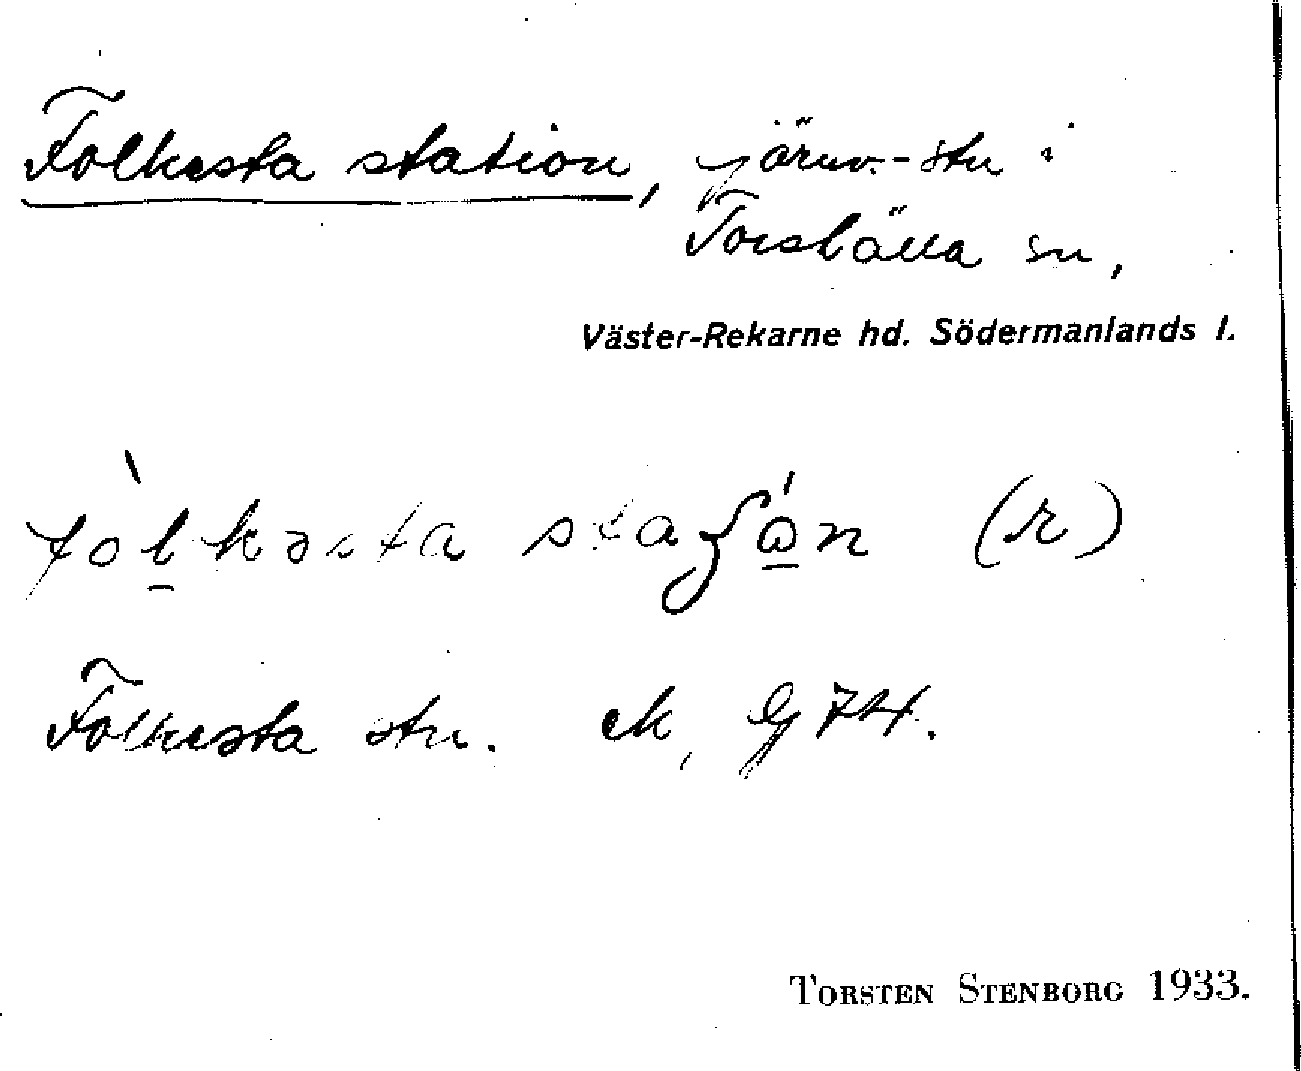 Folkesta station, järnv.-stn i
Torshälla sn,
Väster-Rekarne hd. Södermanlands l.
fòl̲kəsta staʃó̲n (r)
Folkesta stn. ek, Gj 74.
TORSTEN STENBORG 1933.